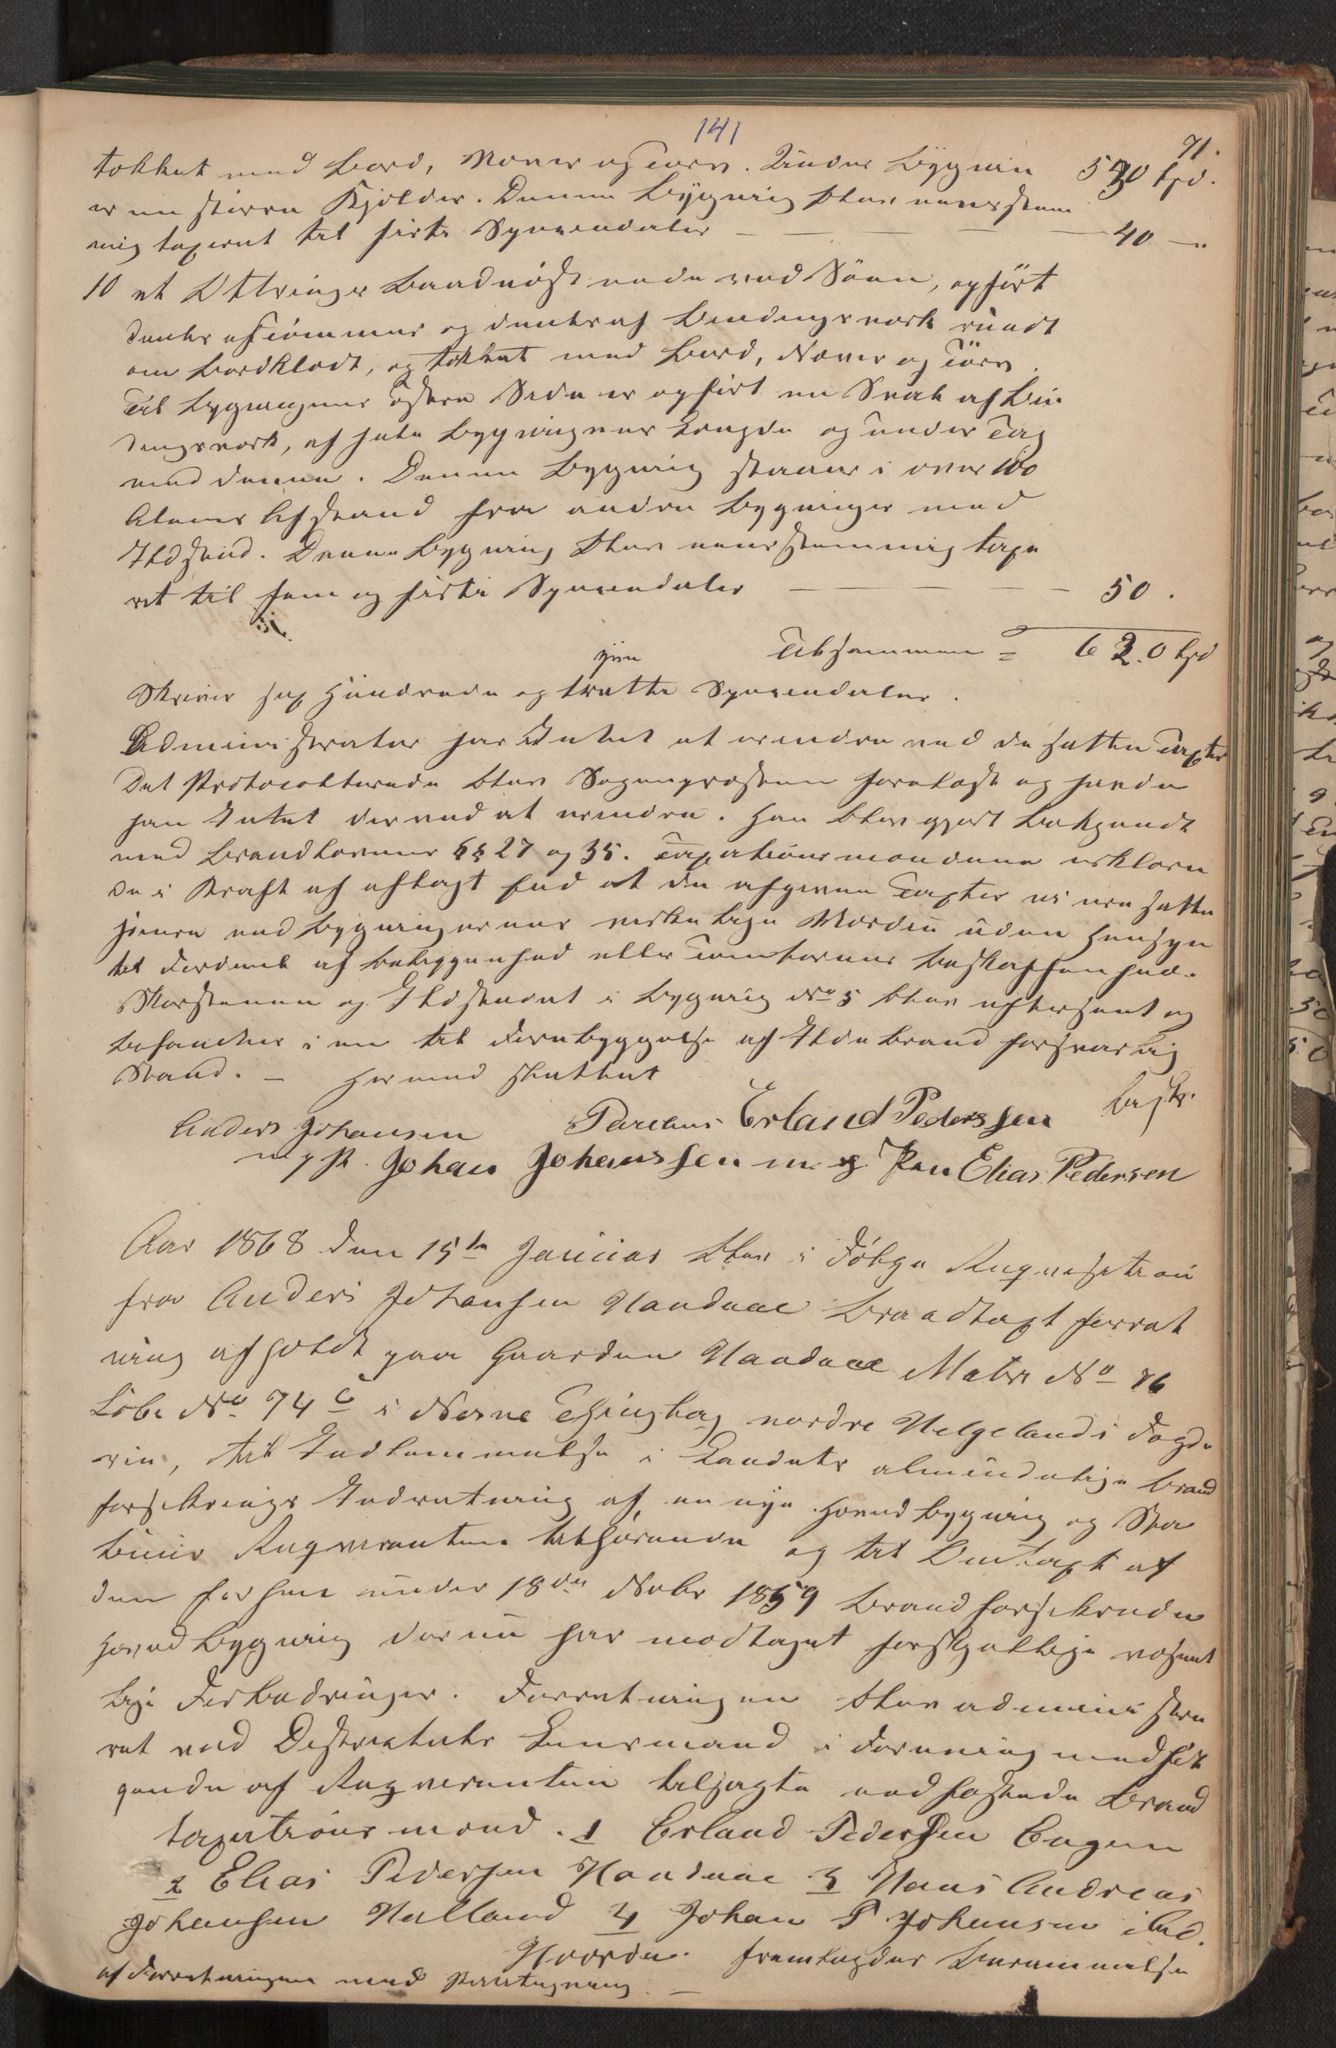 141
71.
tækket med Bord, Næver og Torv. Under Bygnin 530 Spd.
er en større Kjelder. Denne Bygning blev eensstem
mig taxeret til firti Speciedaler — 40 —"
10 et Ottrings Baadnøst nede ved Søen, opført
deels af Tømmer og deels af Bindingsverk rundt
om bordklædt, og tækket med Bord, Næver og Torv
Til Bygningens østre Side er opført en Sval af Bin
dingsverk, af hele Bygningens Længde og under Tag
med denne. Denne Bygning staaer i over 100
Alens Afstand fra andre Bygninger med
Ildsted. Denne Bygning blev eensstemmig taxe
ret til fem og firti Speciedaler — 50.
Tilsammen = 620 Spd
Skriver sex Hundrede og tyve Speciedaler.
Administrator har Intet at erindre ved de satte Taxter
Det Protocollerede blev Sognepræsten forelæst og havde
han Intet derved at erindre. Han blev gjort bekjendt
med Brandlovens §§ 27 og 35. Taxationsmændene erklære
de i Kraft af aflagt Eed at de afgivne Taxter ei ere satte
høiere end Bygningernes virkelige Værdie uden Hensyn
til Fordeel af Beliggenhed eller Tomternes Beskaffenhed.
Skorstenen og Ildstedet i Bygning No 5 blev efterseet og
befandtes i en til Forebyggelse af Ildebrand forsvarlig
Stand. — Hermed sluttet
Anders Johansen Erland Pederssen
m. p. P. Johan Johanssen m. p. Pen Elias Pedersen
Aar 1868 den 15de Januar blev i Følge Reqvisition
fra Anders Johansen Naadael Brandtaxt forret
ning afholdt paa Gaarden Naadael Matr No 76
Løbe No 74 c i Nesne Thinglag nordre Helgelands Fogde
rie, til Indlemmelse i Landets almindelige Brand
forsikrings Indretning af en nye Hovedbygning og Sta
buur Reqvirenten tilhørende og til Omtaxt af
den forhen under 18de Novbr 1859 Brandforsikrede
Hovedbygning der nu har modtaget forskjellige væsent
lige Forbedringer. Forretningen blev administre
ret ved Districtets Lensmand i Forening med føl
gende af Reqvirenten tilsagte eedfæstede Brand
taxationsmænd. 1 Erland Pederssen
2 Elias Pedersen Naadael 3 Hans Andreas
Johansen Hælland 4 Johan P. Johansen ibid.
fremlagdes Berammelse
af Forretningen med Paategning. —